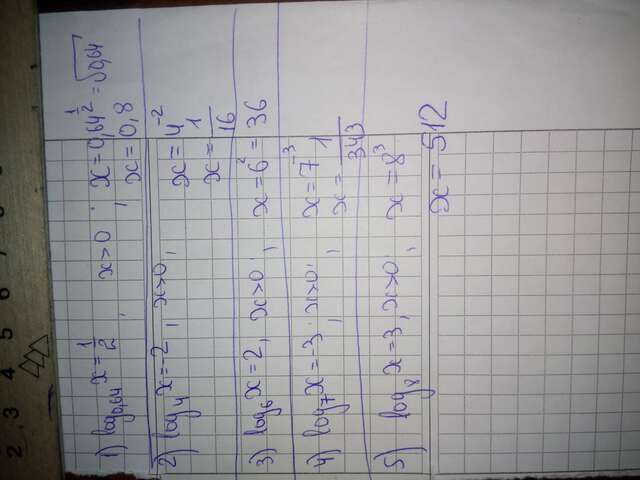 1) log₀,₆₄ x = 1/2, x>0; x = 0,64^(1/2) = √0,64
x = 0,8
2) log₄ x = -2, x>0, x = 4⁻²
x = 1/16
3) log₆ x = 2, x>0, x = 6² = 36
4) log₇ x = -3, x>0, x = 7⁻³
x = 1/343
5) log₈ x = 3, x>0, x = 8³
x = 512
2 3 4 5 6 7